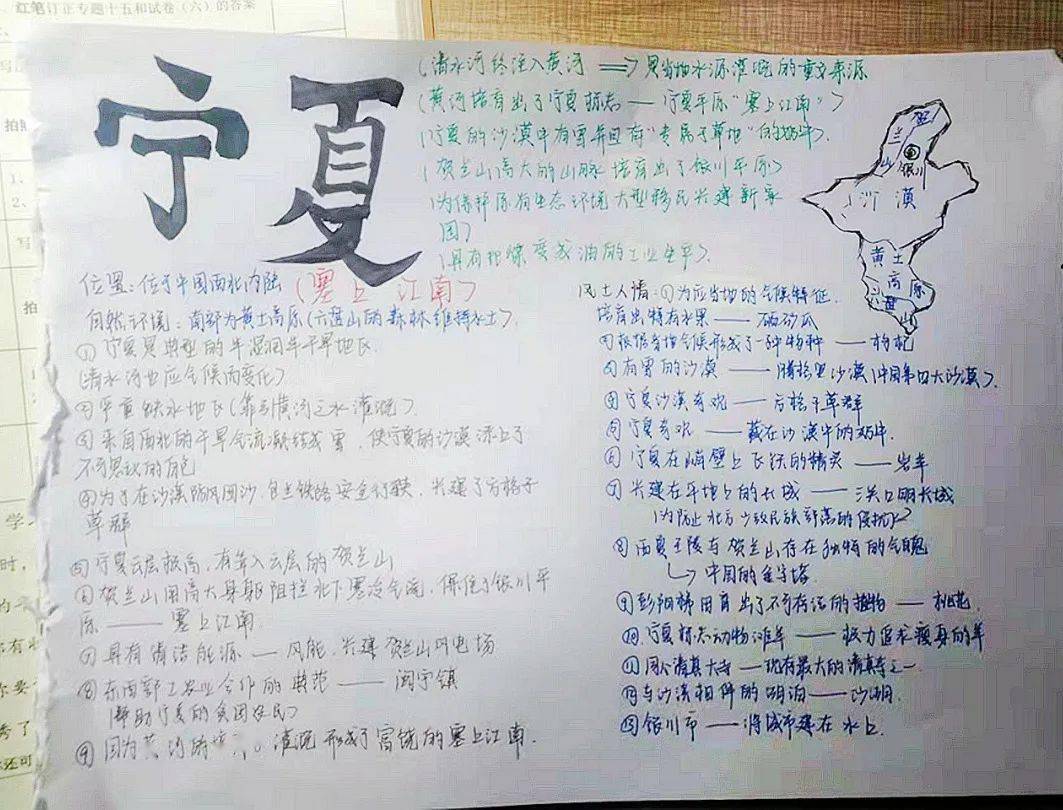 红笔订正专题十五和试卷（六）的答案
宁夏
(清水河终注入黄河 ⟹ 是当地水源灌溉的重要来源
(黄河培育出了宁夏标志——宁夏平原"塞上江南")
(宁夏的沙漠中有雪并且有"专属于草地"的奶牛).
(贺兰山高大的山脉培育出了银川平原)
(为保护原有生态环境大型移民兴建新家
园)
(具有把煤变成油的工业生平).
贺
兰
山
银川
沙漠
黄土
高原
六盘山
位置:位于中国西北内陆(塞上江南)
自然环境:南部为黄土高原(六盘山的森林维持水土).
①宁夏是典型的半湿润半干旱地区
(清水河也应气候而变化)
②严重缺水地区(靠引黄河之水灌溉).
③来自西北的干旱气流凝结成雪,使宁夏的沙漠添上了
不可思议的白色
④为了在沙漠防风固沙,包兰铁路安全行驶,兴建了方格子
草群
⑤宁夏云层极高,有耸入云层的贺兰山
⑥贺兰山用高大身躯阻拦北下寒冷气流,保住了银川平
原——塞上江南.
⑦具有清洁能源—风能,兴建贺兰山风电场
⑧东西部工农业合作的典范——闽宁镇
(帮助宁夏的贫困农民)
⑨因为黄河的 灌溉形成了富饶的塞上江南.
风土人情:①为应当地的气候特征.
培育出特有水果——硒砂瓜
②根据当地气候形成了一种物种——枸杞
③有雪的沙漠——腾格里沙漠(中国第四大沙漠).
④宁夏沙漠奇观——方格子草群
⑤宁夏奇观——藏在沙漠中的奶牛.
⑥宁夏在峭壁上飞跃的精灵——岩羊
⑦兴建在平地上的长城——三关口明长城
(为防止北方少数民族部落的侵扰)
⑧西夏王陵与贺兰山存在独特的气魄
↳中国的金字塔.
⑨彭阳梯田育出了不可存活的植物——桃花.
⑩宁夏标志动物滩羊——极力追求瘦身的羊
⑪同心清真大寺——现存最大的清真寺之一
⑫与沙漠相伴的湖泊——沙湖.
⑬银川市——将城市建在水上